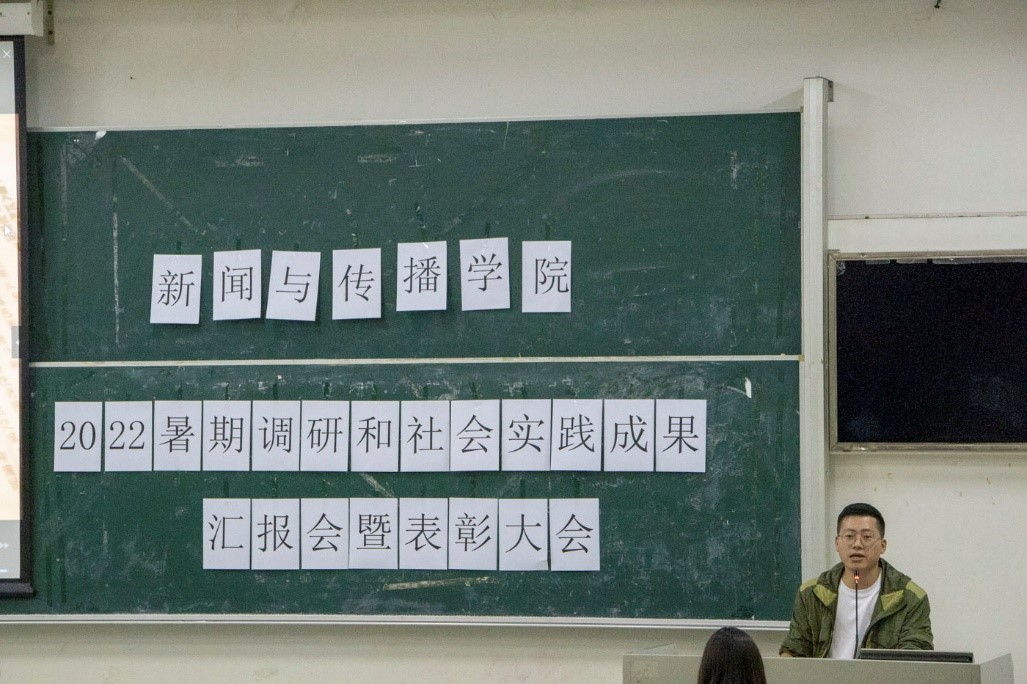 新闻与传播学院
2022暑期调研和社会实践成果
汇报会暨表彰大会